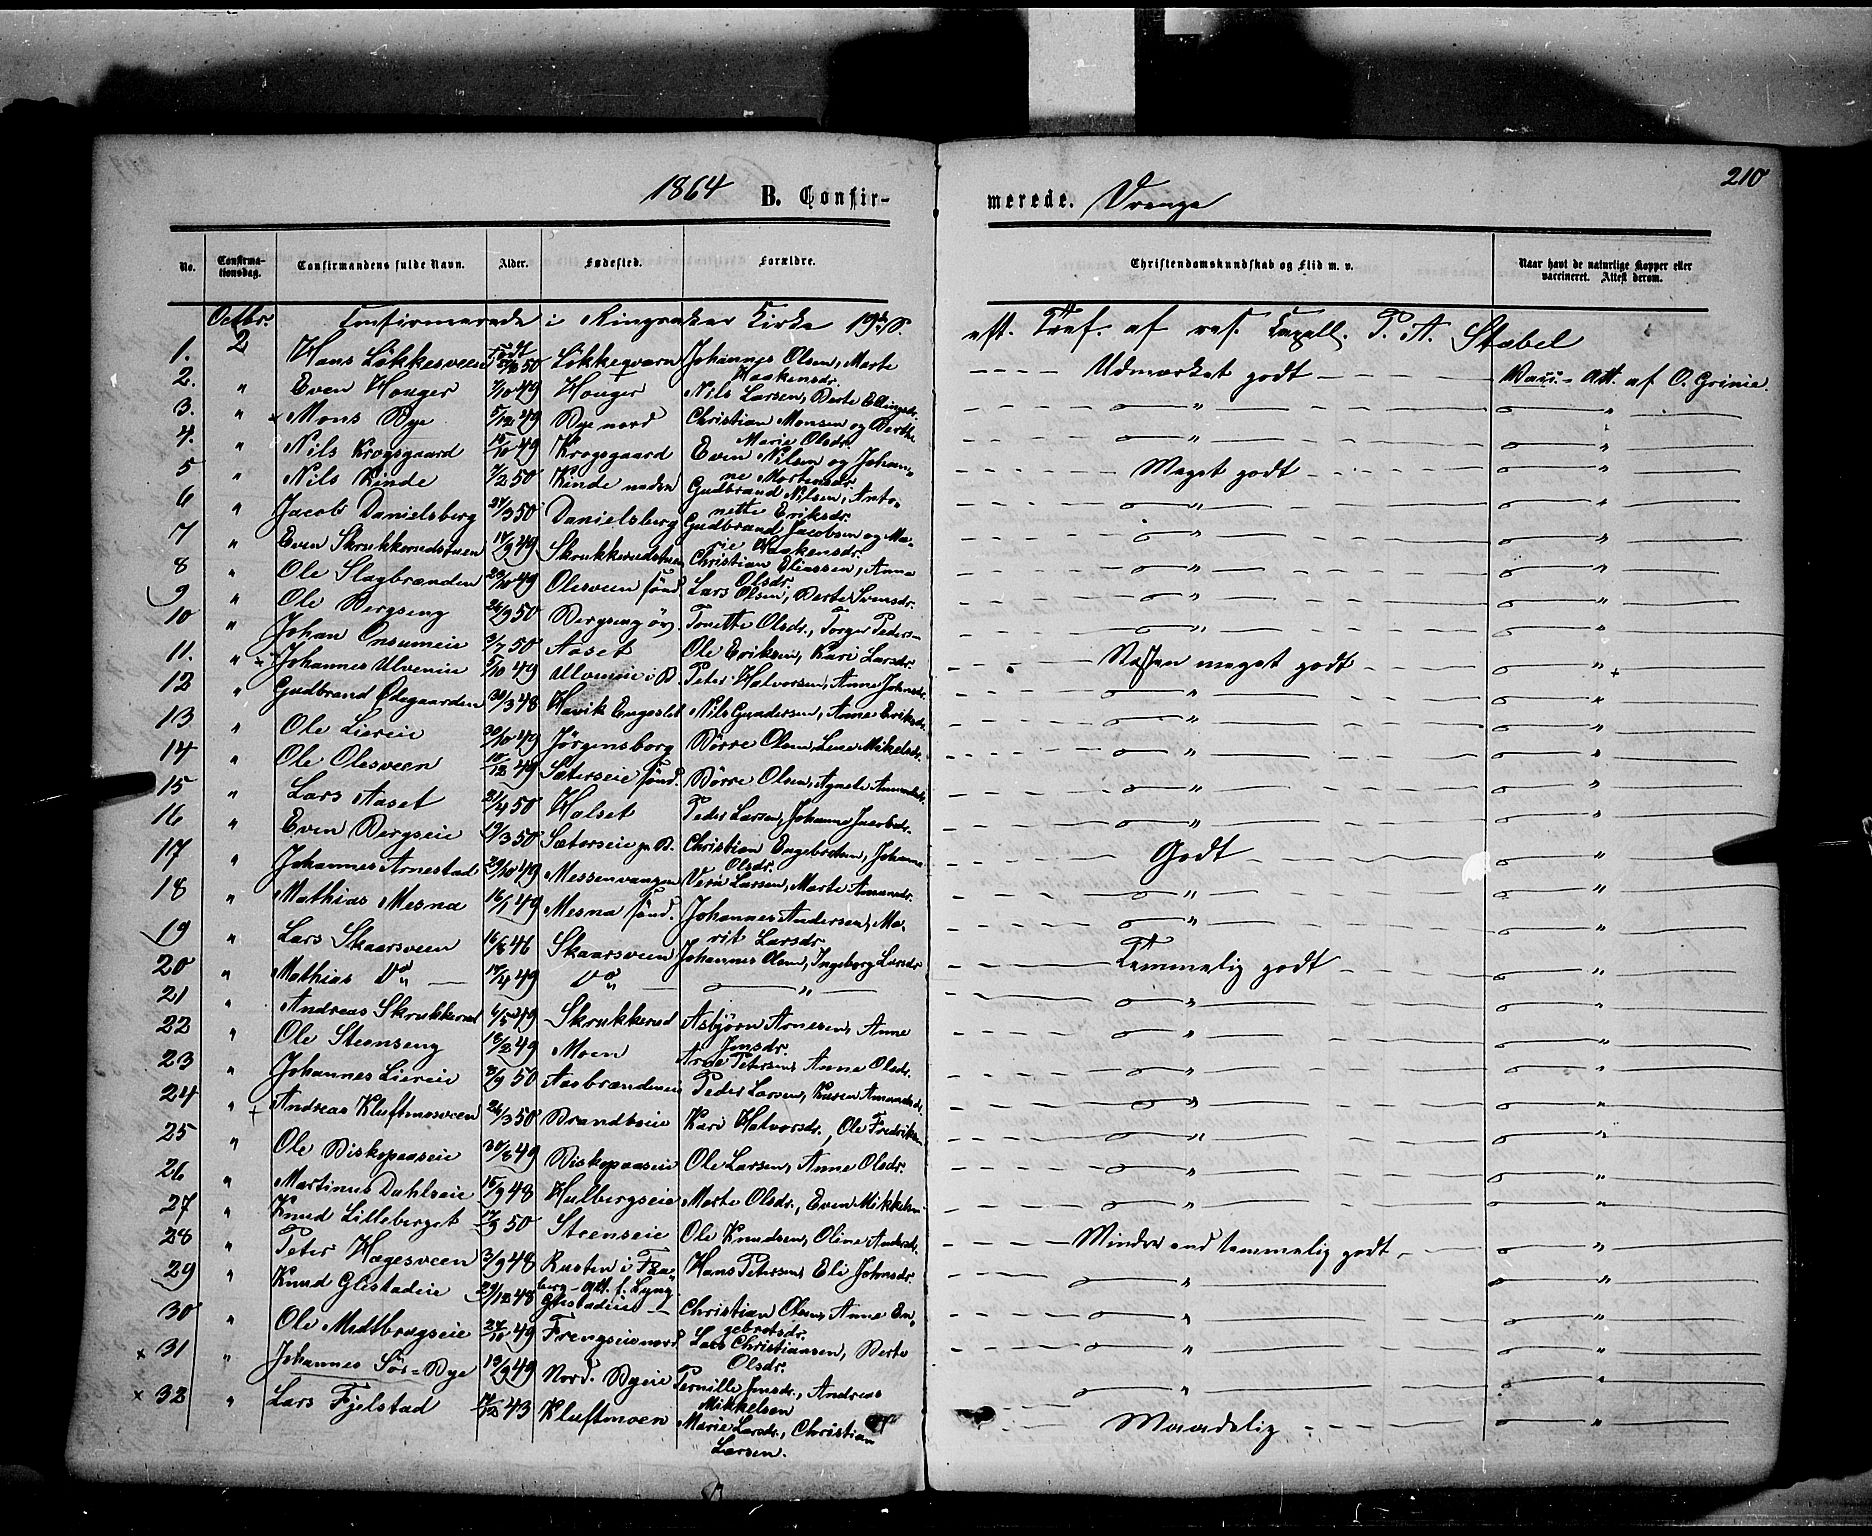 210
1864 B. Confir- merede. Drenge
No. Confirma-tionsdag. Confirmandens fulde Navn. Alder. Fødested. Forældre. Christendomskundskab og Flid m. v. Naar havt de naturlige Kopper eller vaccineret. Attest derom.
Octbr. Confirmerede i Ringsaker Kirke 19 S. eft. Tref. af res. Capell. P. A. Stabel
1. 2 Hans Løkkesveen Født 50 Løkkeqvarn Johannes Olsen, Marte Haakensdr. Udmærket godt Vacc. Att. af O. Grinie.
2. " Even Houger 7/10 49 Houger Nils Larsen, Berte Ellingsdr. "
3. " × Mons Bye 5/12 49 Bye nord Christian Monsen og Berthe Marie Olsdr. "
4. " Nils Krogsgaard 15/10 49 Krogsgaard Even Nilsen og Johanne Mortensdr. Meget godt "
5 " Nils Kinde 7/2 50 Kinde nedre Gudbrand Nilsen, Antonette Eriksdr. " "
6 " Jacob Danielsberg 21/3 50 Danielsberg Gudbrand Jacobsen og Marie Haakensdr. " "
7 " Even Skrukkerudstuen 14/9 49 Skrukkerudstuen Christian Eliassen, Anne Olsdr. " "
8 " Ole Slagbrænden 23/10 49 Olesveen sønd. Lars Olsen, Berte Svensdr. " "
9 " Ole Bergseng 26/9 50 Bergseng øv. Tonette Olsdr., Torger Peders. " "
10 " Johan Onsumeie 3/7 50 Aaset Ole Eriksen, Kari Larsdr. Næsten meget godt "
11. " × Johannes Ulveneie 5/10 49 Ulveneie i B. Peter Halvorsen, Anne Johnsdr. " "
12 " Gudbrand Ødegaarden 30/3 48 Havik Engeslet Nils Gundersen, Anne Eriksdr. "
13 " Ole Liereie 30/10 49 Jørgensborg Børre Olsen, Lene Mikelsdr. " "
14 " Ole Olesveen 10/12 49 Sæterseie sønd. Børre Olsen, Agnete Amundsdr. " "
15 " Lars Aaset 21/4 50 Halset Peder Larsen, Johanne Jacobsdr. " "
16 " Even Bergseie 19/3 50 Sæterseie Christian Engebretsen, Johanne Olsdr. Godt "
17 " Johannes Arnestad 29/10 49 Messenvangen Larsen, Marte Amundsdr. " "
18 " Mathias Mesna 16/1 49 Mesna sønd. Johannes Andersen, Marit Larsdr. " "
19 " Lars Skaarsveen 16/8 46 Skaarsveen Johannes Olsen, Ingeborg Larsdr. Temmelig godt "
20 " Mathias Do 17/4 49 Do " " "
21 " Andreas Skrukkerud 6/5 49 Skrukkerud Asbjørn Arnesen, Anne Jensdr. " "
22 " Ole Steenseng 18/2 49 Moen Arne Petersen, Anne Olsdr. "
23 " Johannes Liereie 3/9 50 Aasbrændeneie Peder Larsen, Karen Amundsdr. " "
24 " + Andreas Kluftmosveen 26/3 50 Brandbueie Kari Halvorsdr., Ole Fredriksen " "
25 " Ole Biskopaaseie 30/8 49 Biskopaaseie Ole Larsen, Anne Olsdr. " "
26 " Martinus Dahlseie 15/9 48 Hulbergseie Marte Olsdr., Even Mikkelsen " "
27 " Knud Lilleberget 17/3 50 Steenseie Ole Knudsen, Oline Andersdr. Mindre end temmelig godt "
28 " Peter Hagesveen 3/9 48 Rusten i Faaberg - Att. f. Lyng Hans Petersen, Eli Johnsdr. " "
29 " Knud Glestadeie 29/12 48 Glestadeie Christian Olsen, Anne Engebretsdr. " "
30 " Ole Midtbrugseie 27/10 49 Frengseie nord Lars Christiansen, Berte Olsdr. "
× 31 " Johannes Sør-Bye 13/9 49 Nord. Byeie Pernille Jensdr., Andreas Mikkelsen " "
× 32 " Lars Fjelstad 17/12 43 Kluftmoen Marie Larsdr., Christian Larsen. Maadelig "